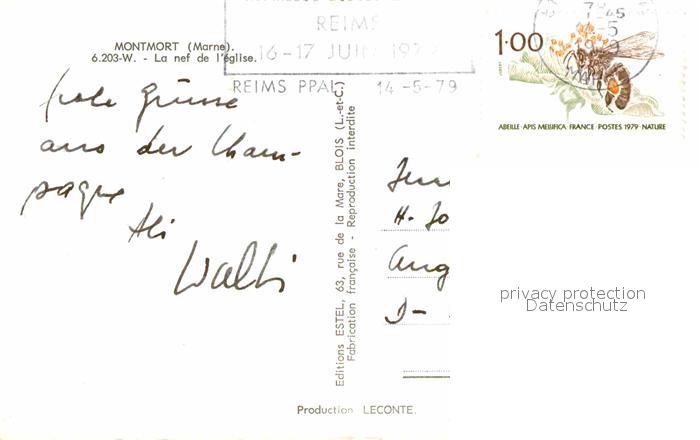 REIMS
16-17 JUIN 1979
REIMS PPAL 14-5-79
1·00
ABEILLE·APIS MELLIFICA FRANCE·POSTES 1979·NATURE
MONTMORT (Marne).
6.203-W. - La nef de l'église.
frohe Grüsse
aus der Cham-
pagne
Walti
Editions ESTEL, 63, rue de la Mare, BLOIS (L.-et-C.)
Fabrication française - Reproduction interdite
H. Jo
Ang
D-
privacy protection
Datenschutz
Production LECONTE.